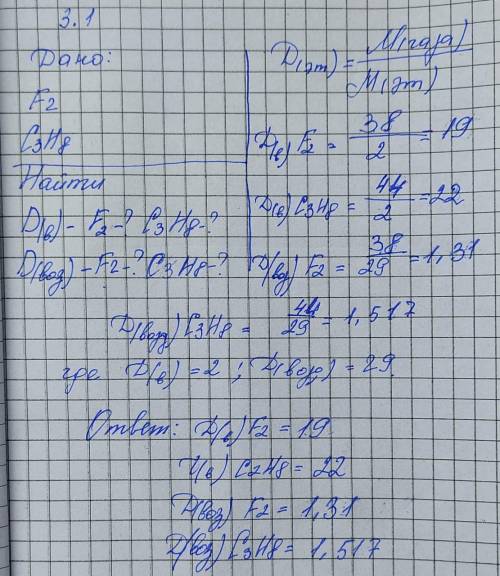 3.1
Дано:
F2
C3H8
Найти
D(в) - F2 -? C3H8 -?
D(воз) - F2 -? C3H8 -?
D(эт) = M(газа) / M(эт)
D(в) F2 = 38 / 2 = 19
D(в) C3H8 = 44 / 2 = 22
D(воз) F2 = 38 / 29 = 1,31
D(возд) C3H8 = 44 / 29 = 1,517
где D(в) = 2 ; D(возд) = 29.
Ответ: D(в) F2 = 19
D(в) C2H8 = 22
D(воз) F2 = 1,31
D(воз) C3H8 = 1,517